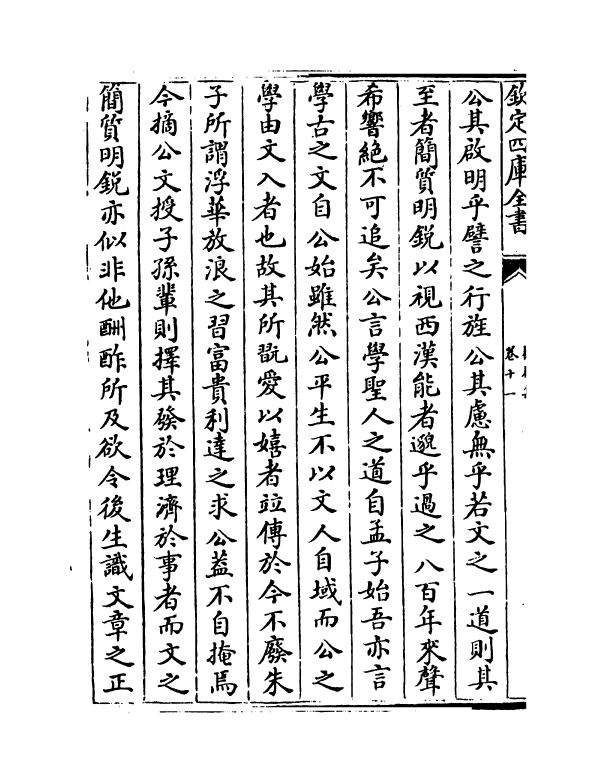 欽定四庫全書
卷十一
公其啟明乎譬之行旌公其慮無乎若文之一道則其
至者簡質明鋭以視西漢能者邈乎過之八百年來聲
希響絕不可追矣公言學聖人之道自孟子始吾亦言
學古之文自公始雖然公平生不以文人自域而公之
學由文入者也故其所翫愛以嬉者竝傳於今不廢朱
子所謂浮華放浪之習富貴利達之求公蓋不自掩焉
今摘公文授子孫輩則擇其發於理濟於事者而文之
簡質明鋭亦似非他酬酢所及欲令後生識文章之正